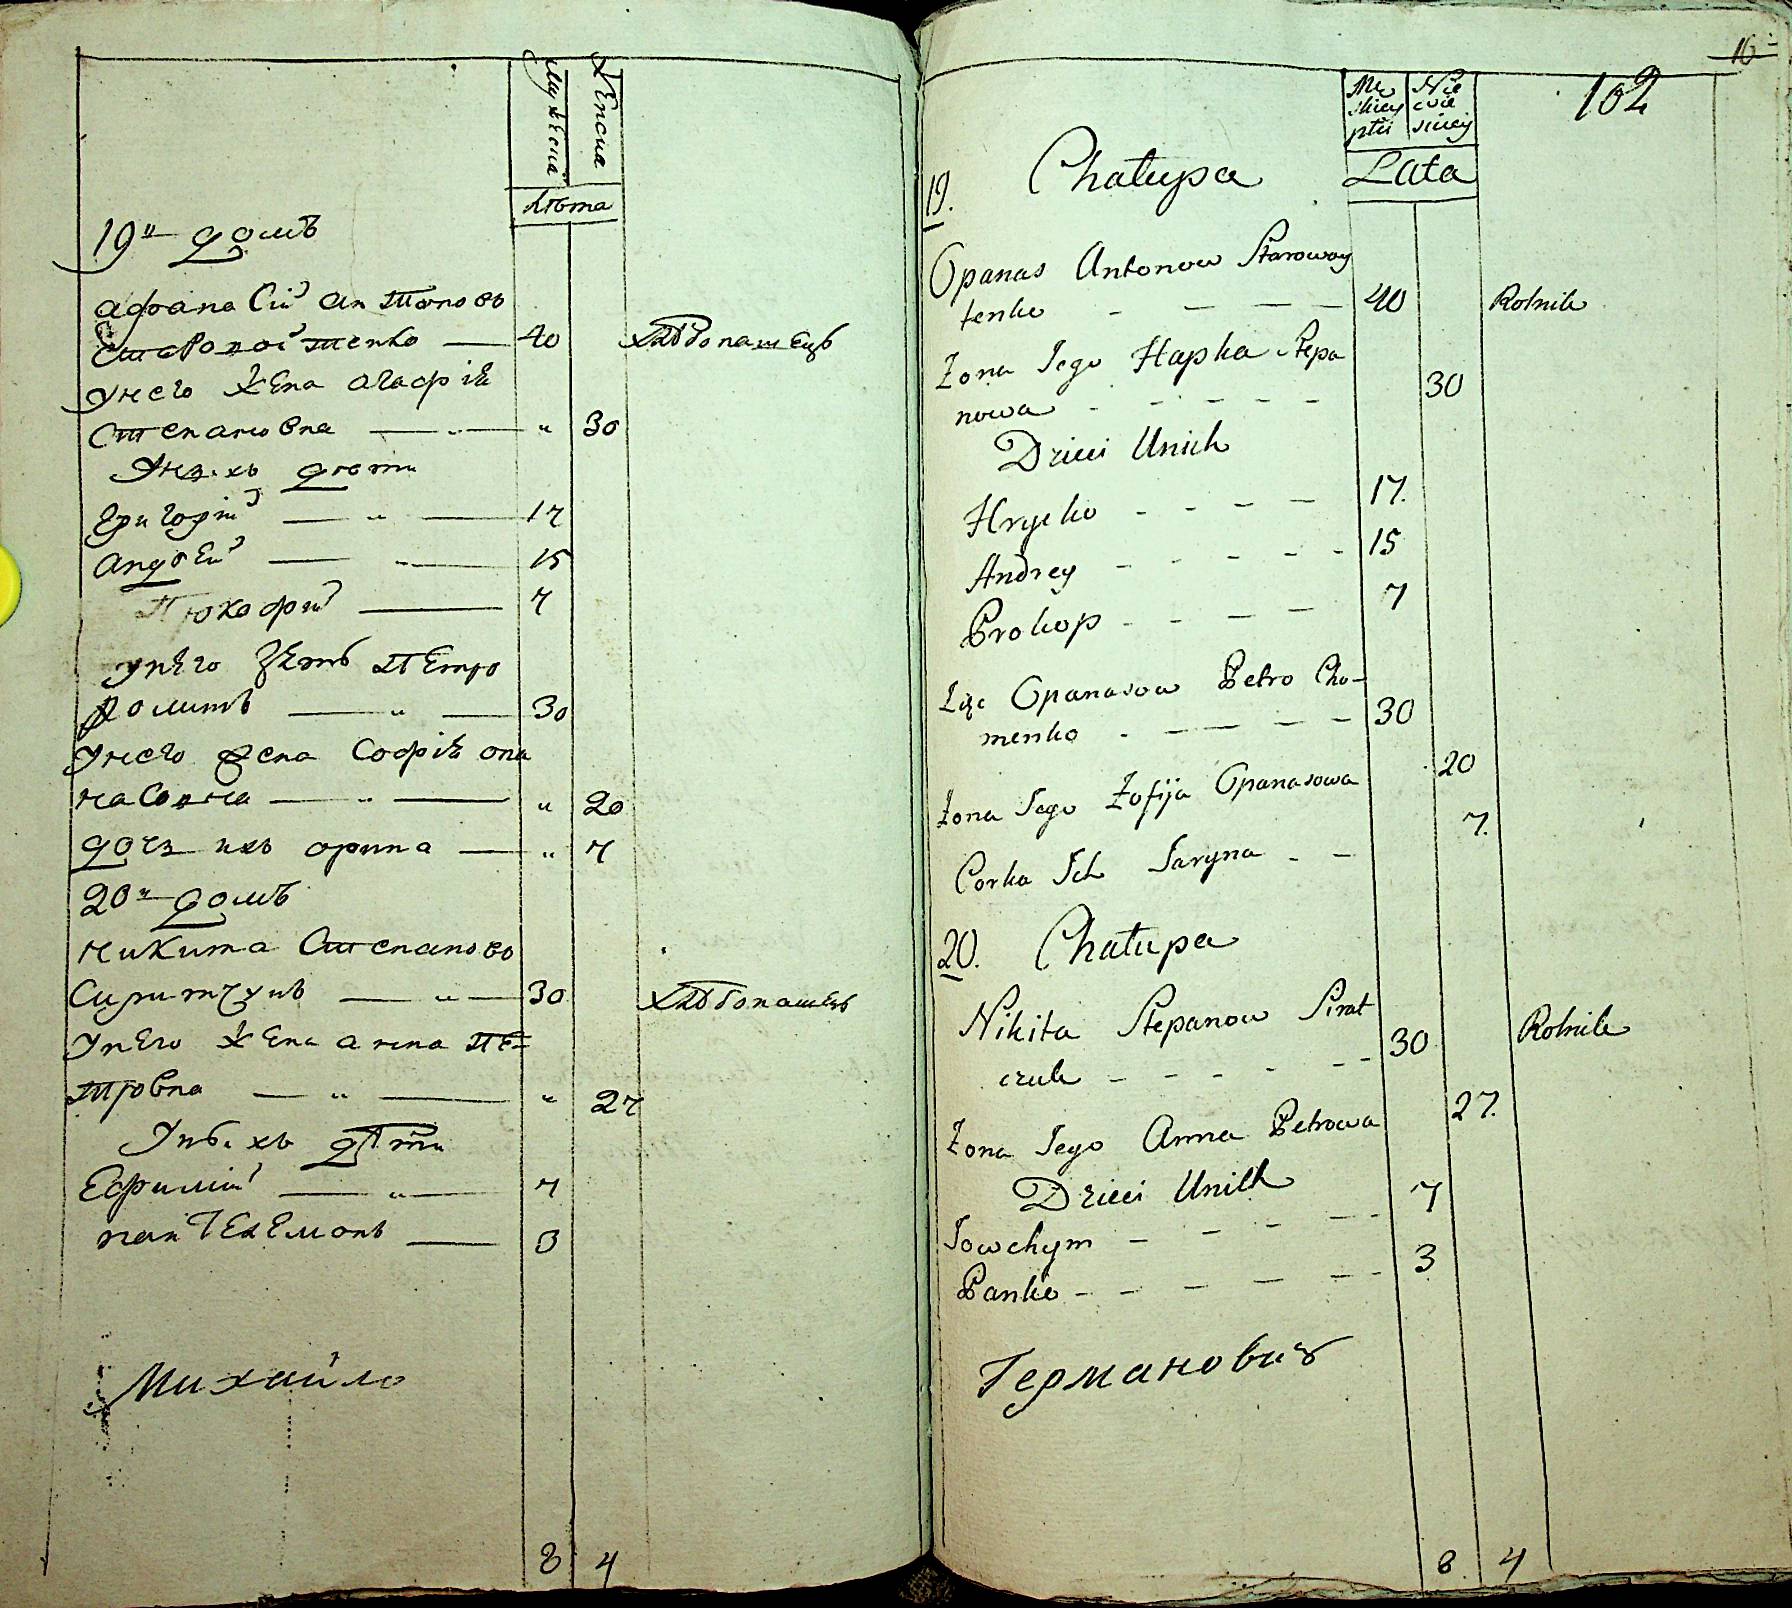 Мужеска Женска
лѣта
19й домъ
афанасій антоновъ
Старовойтенко — 40 хлѣбопашецъ
у него жена агафія
Степановна — " — " 30
у нихъ дѣти
григорій — " — 17
андрей — " — 15
Прокофій — 7
у него зять Петро
Фоминъ — " — 30
у него жена Софія опа
насовна — " — " 20
дочь ихъ орина — " 7
20й домъ
никита Степановъ
Сиритчукъ — " — 30 хлѣбопашецъ
у него жена анна Пе=
тровна — " — " 27
у нихъ дѣти
Ефимій — " — 7
пантелемонъ — 3
Михайло
8 4
16
102
Męskiey płci Niewieściey
Lata
19. Chałupa
Opanas Antonow Starowoy
tenko - — — — 40 Rolnik
Żona Iego Hapka Stepa
nowa - - - - - - 30
Dzieci Unich
Hryćko - - - — 17.
Andrey - - - - - 15
Prokop - - - — 7
Zięć Opanasow Petro Cho-
menko - — — — — 30
Żona Iego Zofija Opanasowa 20
Corka Ich Jaryna - — 7.
20. Chałupa
Nikita Stepanow Sirot
czuk - - - - - — 30 Rolnik
Żona Iego Anna Petrowa 27.
Dzieci Unich
Jowchym — - - - — 7
Panko - - — — — - 3
Германовичъ
8 4